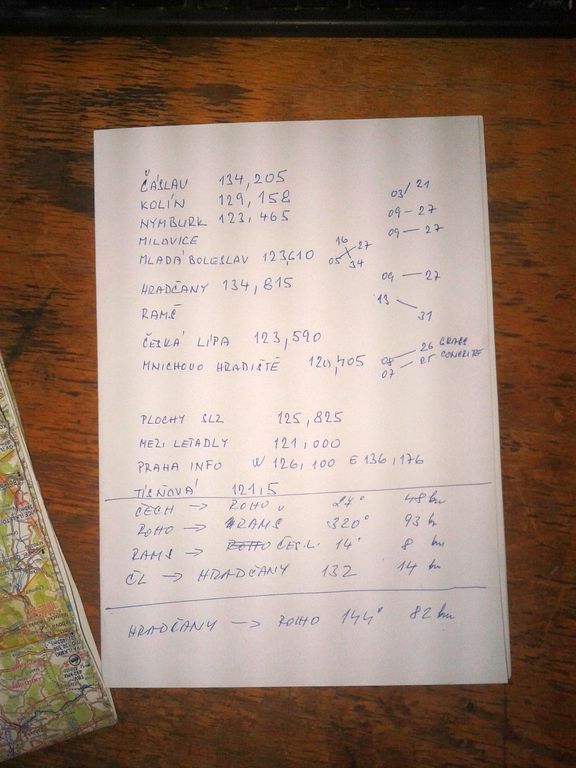 ČÁSLAV 134,205 03/21
KOLÍN 129,158 09 – 27
NYMBURK 123,465 09 – 27
MILOVICE
MLADÁ BOLESLAV 123,610 16 27 05 34
HRADČANY 134,815 09 – 27
RAMŠ 13 31
ČESKÁ LÍPA 123,590
MNICHOVO HRADIŠTĚ 120,705 08 – 26 GRASS
07 – 25 CONCRETE
PLOCHY SLZ 125,825
MEZI LETADLY 121,000
PRAHA INFO W 126,100 E 136,176
TÍSŇOVÁ 121,5
ČECH → ROHO 27° 48 km
ROHO → RAMŠ 320° 93 km
RAMŠ → ROHO ČES.L. 14° 8 km
ČL → HRADČANY 132 14 km
HRADČANY → ROHO 144° 82 km